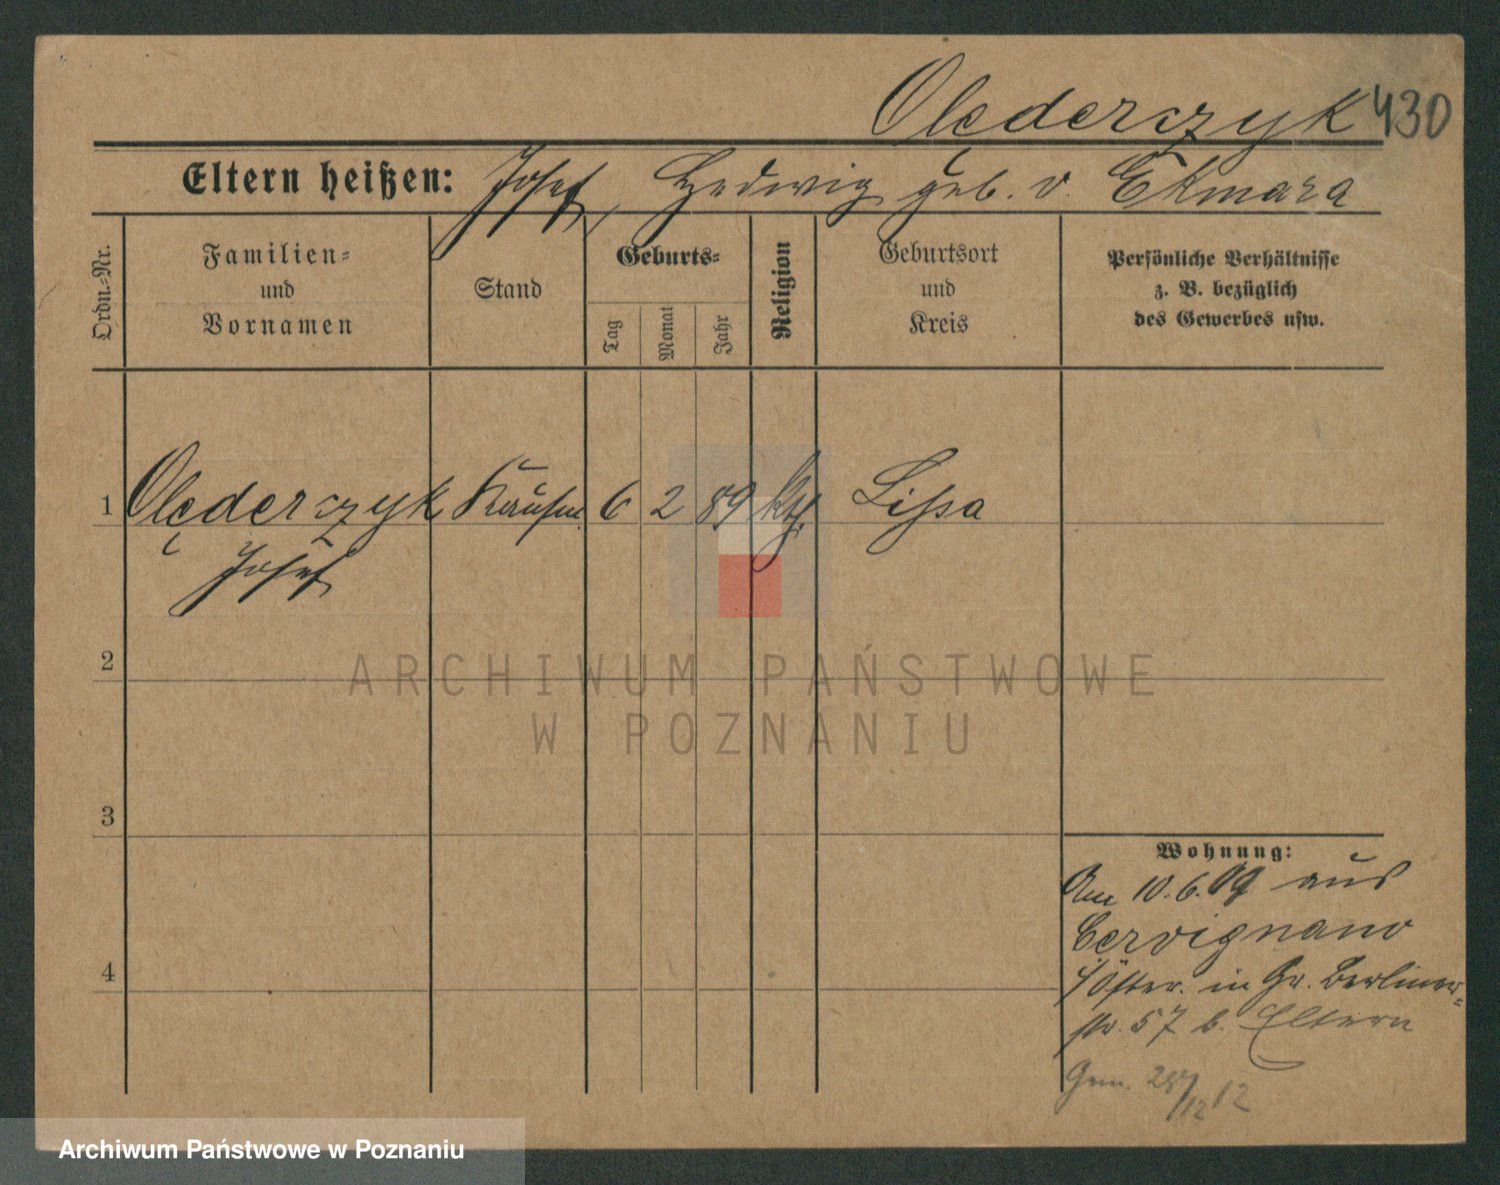 Olęderczyk 430
Eltern heißen: Josef, Hedwig geb. v. Ekmara
Ordn.-Nr.
Familien-
und
Vornamen
Stand
Geburts-
Tag
Monat
Jahr
Religion
Geburtsort
und
Kreis
Persönliche Verhältnisse
z. B. bezüglich
des Gewerbes usw.
1 Olęderczyk Kaufm. 6 2 89 kth. Lissa
Josef
2
ARCHIWUM PAŃSTWOWE
W POZNANIU
3
Wohnung:
Am 10.6.09 aus
Cervignano
i/Öster. in Gr. Berliner-
str. 57 b. Eltern
4
28/12 12
Archiwum Państwowe w Poznaniu